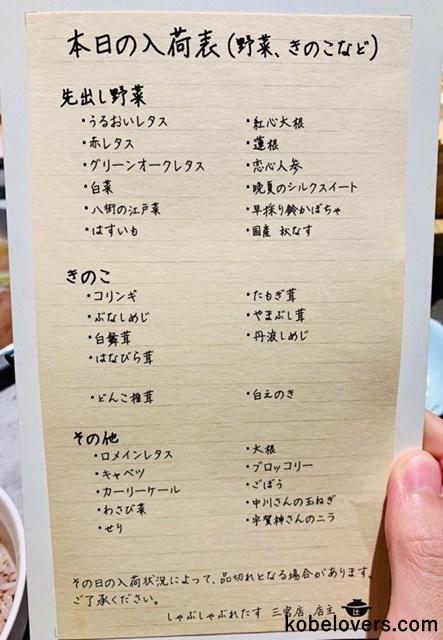 本日の入荷表(野菜、きのこなど)
先出し野菜
・うるおいレタス
・赤レタス
・グリーンオークレタス
・白菜
・八街の江戸菜
・はすいも
・紅心大根
・蓮根
・恋心人参
・晩夏のシルクスイート
・早採り鈴かぼちゃ
・国産 秋なす
きのこ
・コリンギ
・ぶなしめじ
・白舞茸
・はなびら茸
・どんこ椎茸
・たもぎ茸
・やまぶし茸
・丹波しめじ
・白えのき
その他
・ロメインレタス
・キャベツ
・カーリーケール
・わさび菜
・せり
・大根
・ブロッコリー
・ごぼう
・中川さんの玉ねぎ
・宇賀神さんのニラ
その日の入荷状況によって、品切れとなる場合があります。
ご了承ください。
しゃぶしゃぶれたす 三宮店 店主
kobelovers.com